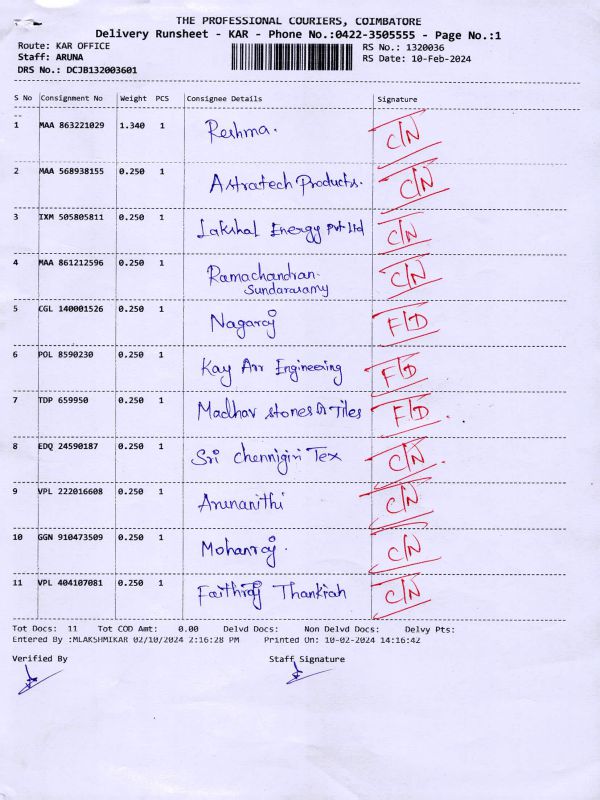 THE PROFESSIONAL COURIERS, COIMBATORE
Delivery Runsheet - KAR - Phone No.:0422-3505555 - Page No.:1
Route: KAR OFFICE RS No.: 1320036
Staff: ARUNA RS Date: 10-Feb-2024
DRS No.: DCJB132003601
S No Consignment No Weight PCS Consignee Details Signature
1 MAA 863221029 1.340 1 Reshma. C/N
2 MAA 568938155 0.250 1 Astratech Products. C/N
3 IXM 505805811 0.250 1 Lakshal Energy Pvt Ltd C/N
4 MAA 861212596 0.250 1 Ramachandran. C/N
Sundarasamy
5 CGL 140001526 0.250 1 Nagaraj F/D
6 POL 8590230 0.250 1 Kay Arr Engineering F/D
7 TDP 659950 0.250 1 Madhav stones & Tiles F/D
8 EDQ 24590187 0.250 1 Sri Chennigiri Tex C/N
9 VPL 222016608 0.250 1 Arunanithi C/N
10 GGN 910473509 0.250 1 Mohanraj. C/N
11 VPL 404107081 0.250 1 Faithraj Thankiah C/N
Tot Docs: 11 Tot COD Amt: 0.00 Delvd Docs: Non Delvd Docs: Delvy Pts:
Entered By :MLAKSHMIKAR 02/10/2024 2:16:28 PM Printed On: 10-02-2024 14:16:42
Verified By Staff Signature